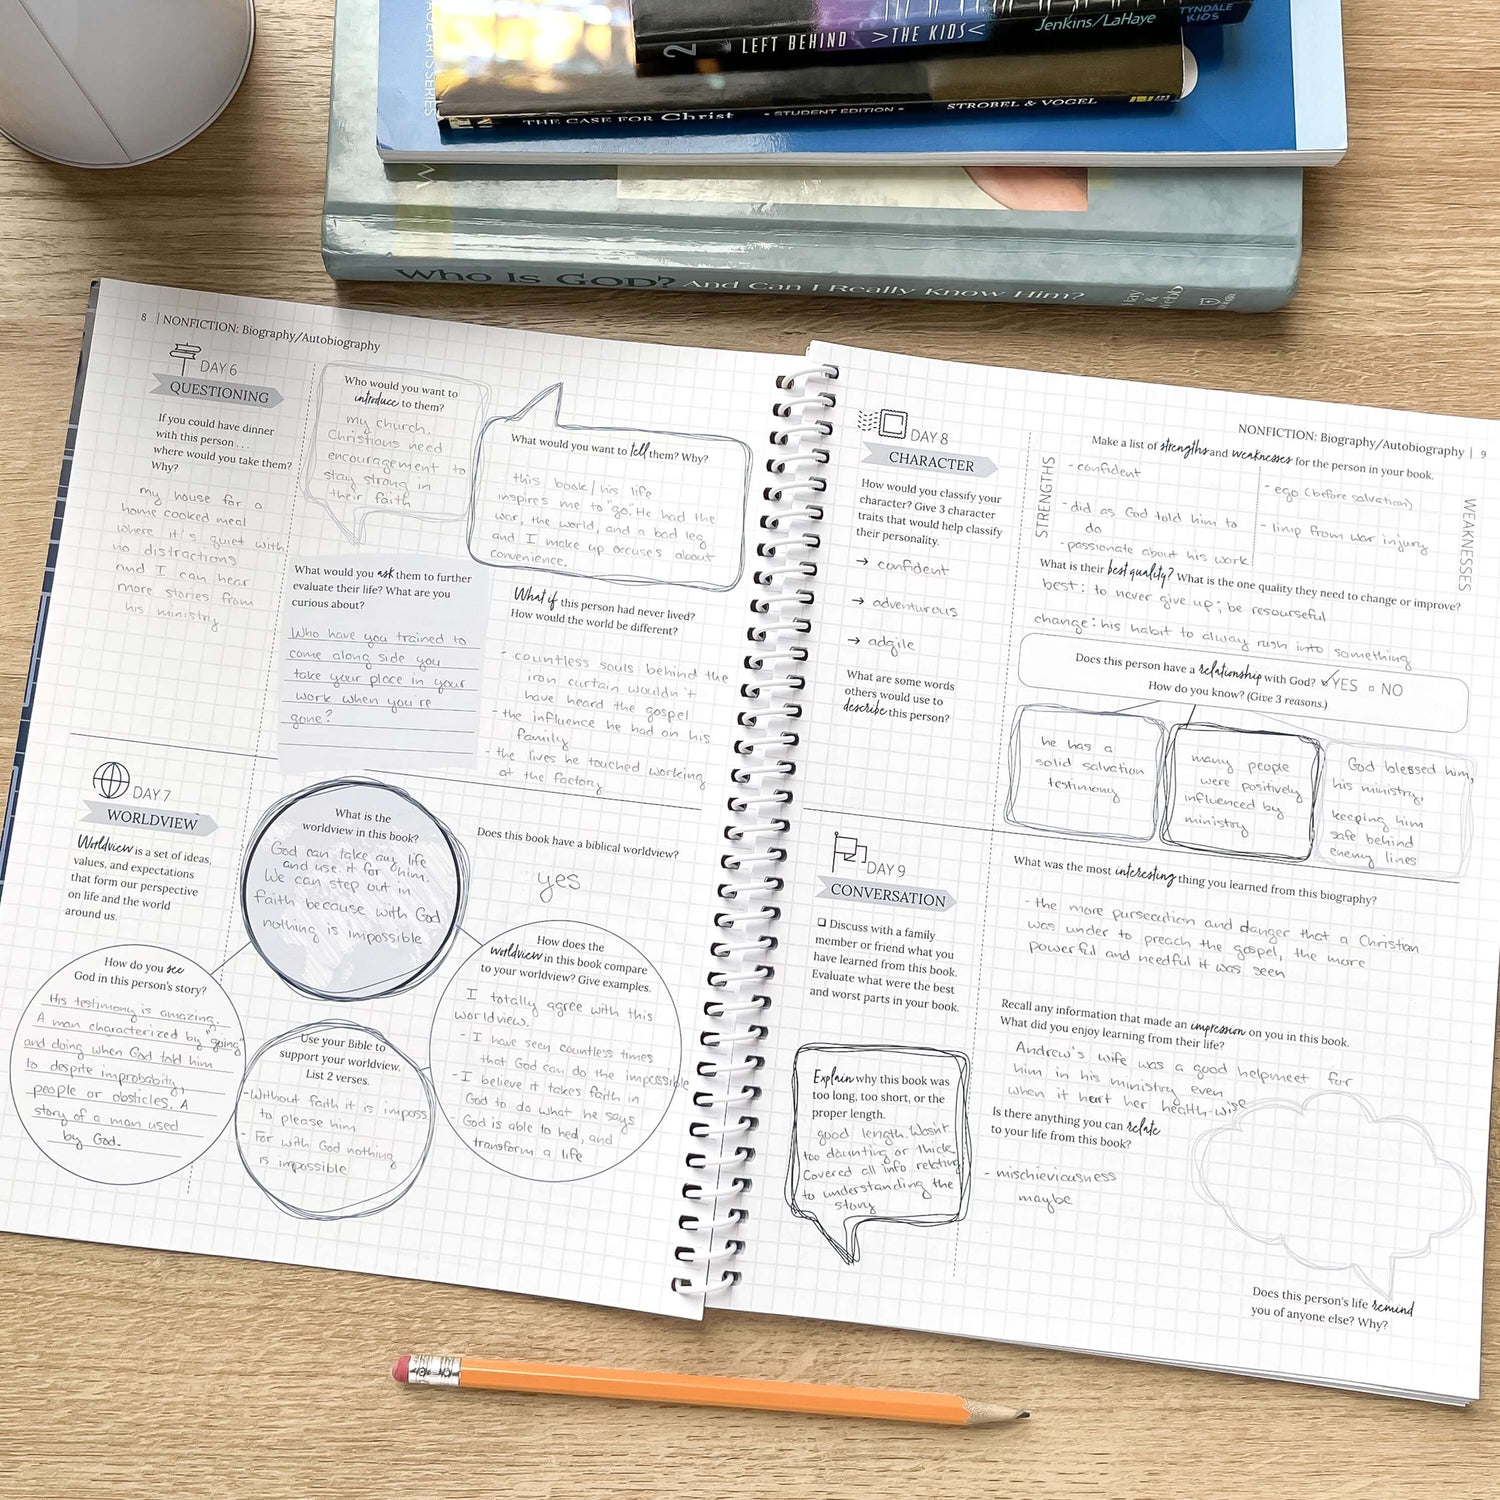 2 LEFT BEHIND >THE KIDS< Jenkins/LaHaye TYNDALE KIDS
THE CASE FOR Christ - STUDENT EDITION - STROBEL & VOGEL
ARTS SERIES
Who Is GOD? And Can I Really Know Him?
8 | NONFICTION: Biography/Autobiography
DAY 6
QUESTIONING
If you could have dinner
with this person . . .
where would you take them?
Why?
my house for a
home cooked meal
where it's quiet with
no distractions
and I can hear
more stories from
his ministry
Who would you want to
introduce to them?
my church.
Christians need
encouragement to
stay strong in
their faith
What would you want to tell them? Why?
this book/his life
inspires me to "go." He had the
war, the world, and a bad leg
and I make up excuses about
convenience.
What would you ask them to further
evaluate their life? What are you
curious about?
Who have you trained to
come along side you
take your place in your
work when you're
gone?
What if this person had never lived?
How would the world be different?
- countless souls behind the
iron curtain wouldn't
have heard the gospel
- the influence he had on his
family
- the lives he touched working
at the factory
DAY 7
WORLDVIEW
Worldview is a set of ideas,
values, and expectations
that form our perspective
on life and the world
around us.
What is the
worldview in this book?
God can take any life
and use it for him.
We can step out in
faith because with God
nothing is impossible
Does this book have a biblical worldview?
yes
How do you see
God in this person's story?
His testimony is amazing.
A man characterized by "going"
and doing when God told him
to despite improbabity,
people or obsticles. A
story of a man used
by God.
Use your Bible to
support your worldview.
List 2 verses.
- Without faith it is imposs
to please him
- For with God nothing
is impossible
How does the
worldview in this book compare
to your worldview? Give examples.
I totally agree with this
worldview.
- I have seen countless times
that God can do the impossible
- I believe it takes faith in
God to do what he says
- God is able to heal, and
transform a life
NONFICTION: Biography/Autobiography | 9
DAY 8
CHARACTER
How would you classify your
character? Give 3 character
traits that would help classify
their personality.
→ confident
→ adventurous
→ adgile
What are some words
others would use to
describe this person?
Make a list of strengths and weaknesses for the person in your book.
STRENGTHS
- confident
- did as God told him to
do
- passionate about his work
WEAKNESSES
- ego (before salvation)
- limp from war injury
What is their best quality? What is the one quality they need to change or improve?
best: to never give up; be resourseful
change: his habit to alway rush into something
Does this person have a relationship with God? ✓YES □ NO
How do you know? (Give 3 reasons.)
he has a
solid salvation
testimony
many people
were positively
influenced by
ministry
God blessed him,
his ministry,
keeping him
safe behind
enemy lines
DAY 9
CONVERSATION
❏ Discuss with a family
member or friend what you
have learned from this book.
Evaluate what were the best
and worst parts in your book.
Explain why this book was
too long, too short, or the
proper length.
good length. Wasn't
too daunting or thick.
Covered all info relating
to understanding the
story
What was the most interesting thing you learned from this biography?
- the more pursecution and danger that a Christian
was under to preach the gospel, the more
powerful and needful it was seen
Recall any information that made an impression on you in this book.
What did you enjoy learning from their life?
Andrew's wife was a good helpmeet for
him in his ministry even
when it hurt her health-wise
Is there anything you can relate
to your life from this book?
- mischieviousness
maybe
Does this person's life remind
you of anyone else? Why?